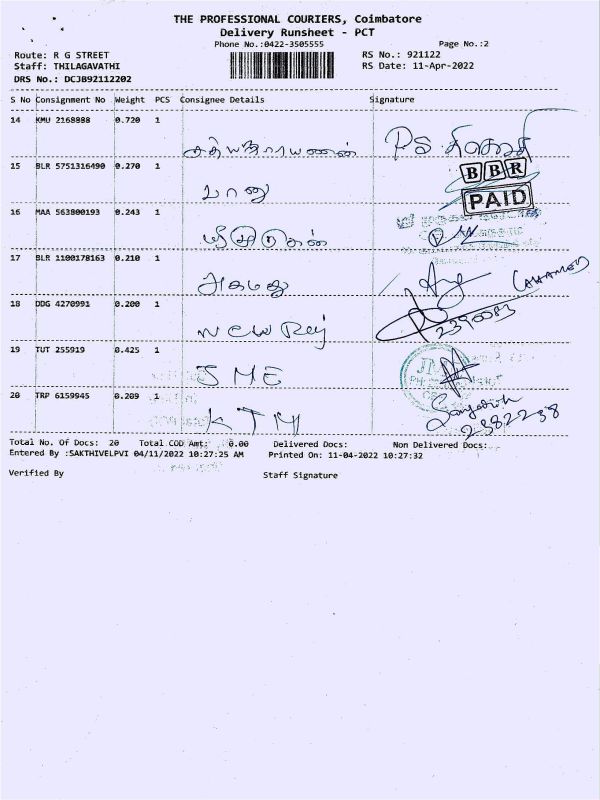 THE PROFESSIONAL COURIERS, Coimbatore
Delivery Runsheet - PCT
Phone No.:0422-3505555
Page No.:2
Route: R G STREET
RS No.: 921122
Staff: THILAGAVATHI
RS Date: 11-Apr-2022
DRS No.: DCJB92112202
S No Consignment No Weight PCS Consignee Details Signature
14 KMU 2168888 0.720 1
PS
15 BLR 5751316490 0.270 1
பானு
BBR
PAID
16 MAA 563800193 0.243 1
17 BLR 1100178163 0.210 1
அகமது
(AHAMED)
18 DDG 4270991 0.200 1
New Raj
2390083
19 TUT 255919 0.425 1
SME
20 TRP 6159945 0.209 1
KTM
2382238
Total No. Of Docs: 20 Total COD Amt: 0.00 Delivered Docs: Non Delivered Docs:
Entered By :SAKTHIVELPVI 04/11/2022 10:27:25 AM Printed On: 11-04-2022 10:27:32
Verified By Staff Signature